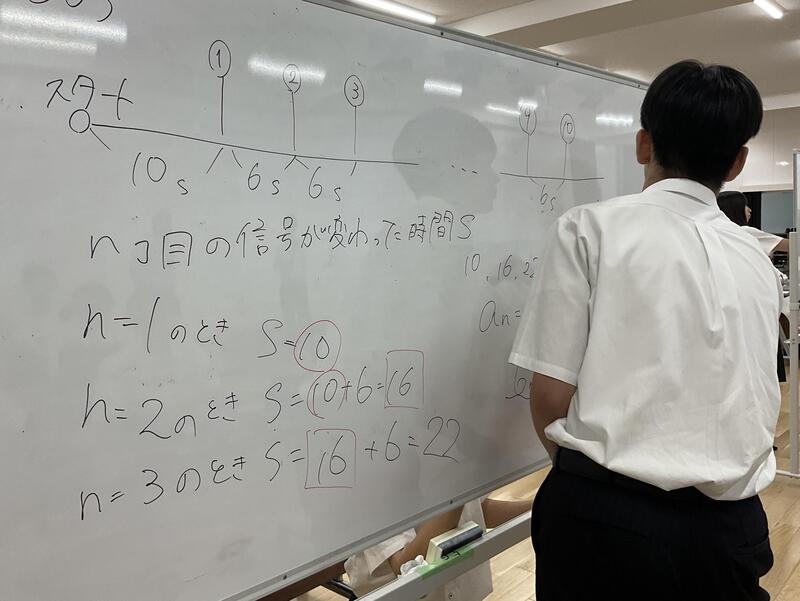 ① ② ③ 9 ⑩
スタート
10s 6s 6s ... 6s
nコ目の信号が変わった時間S
10, 16, 22
an=
n=1のとき S=10
n=2のとき S=10+6=16
n=3のとき S=16+6=22